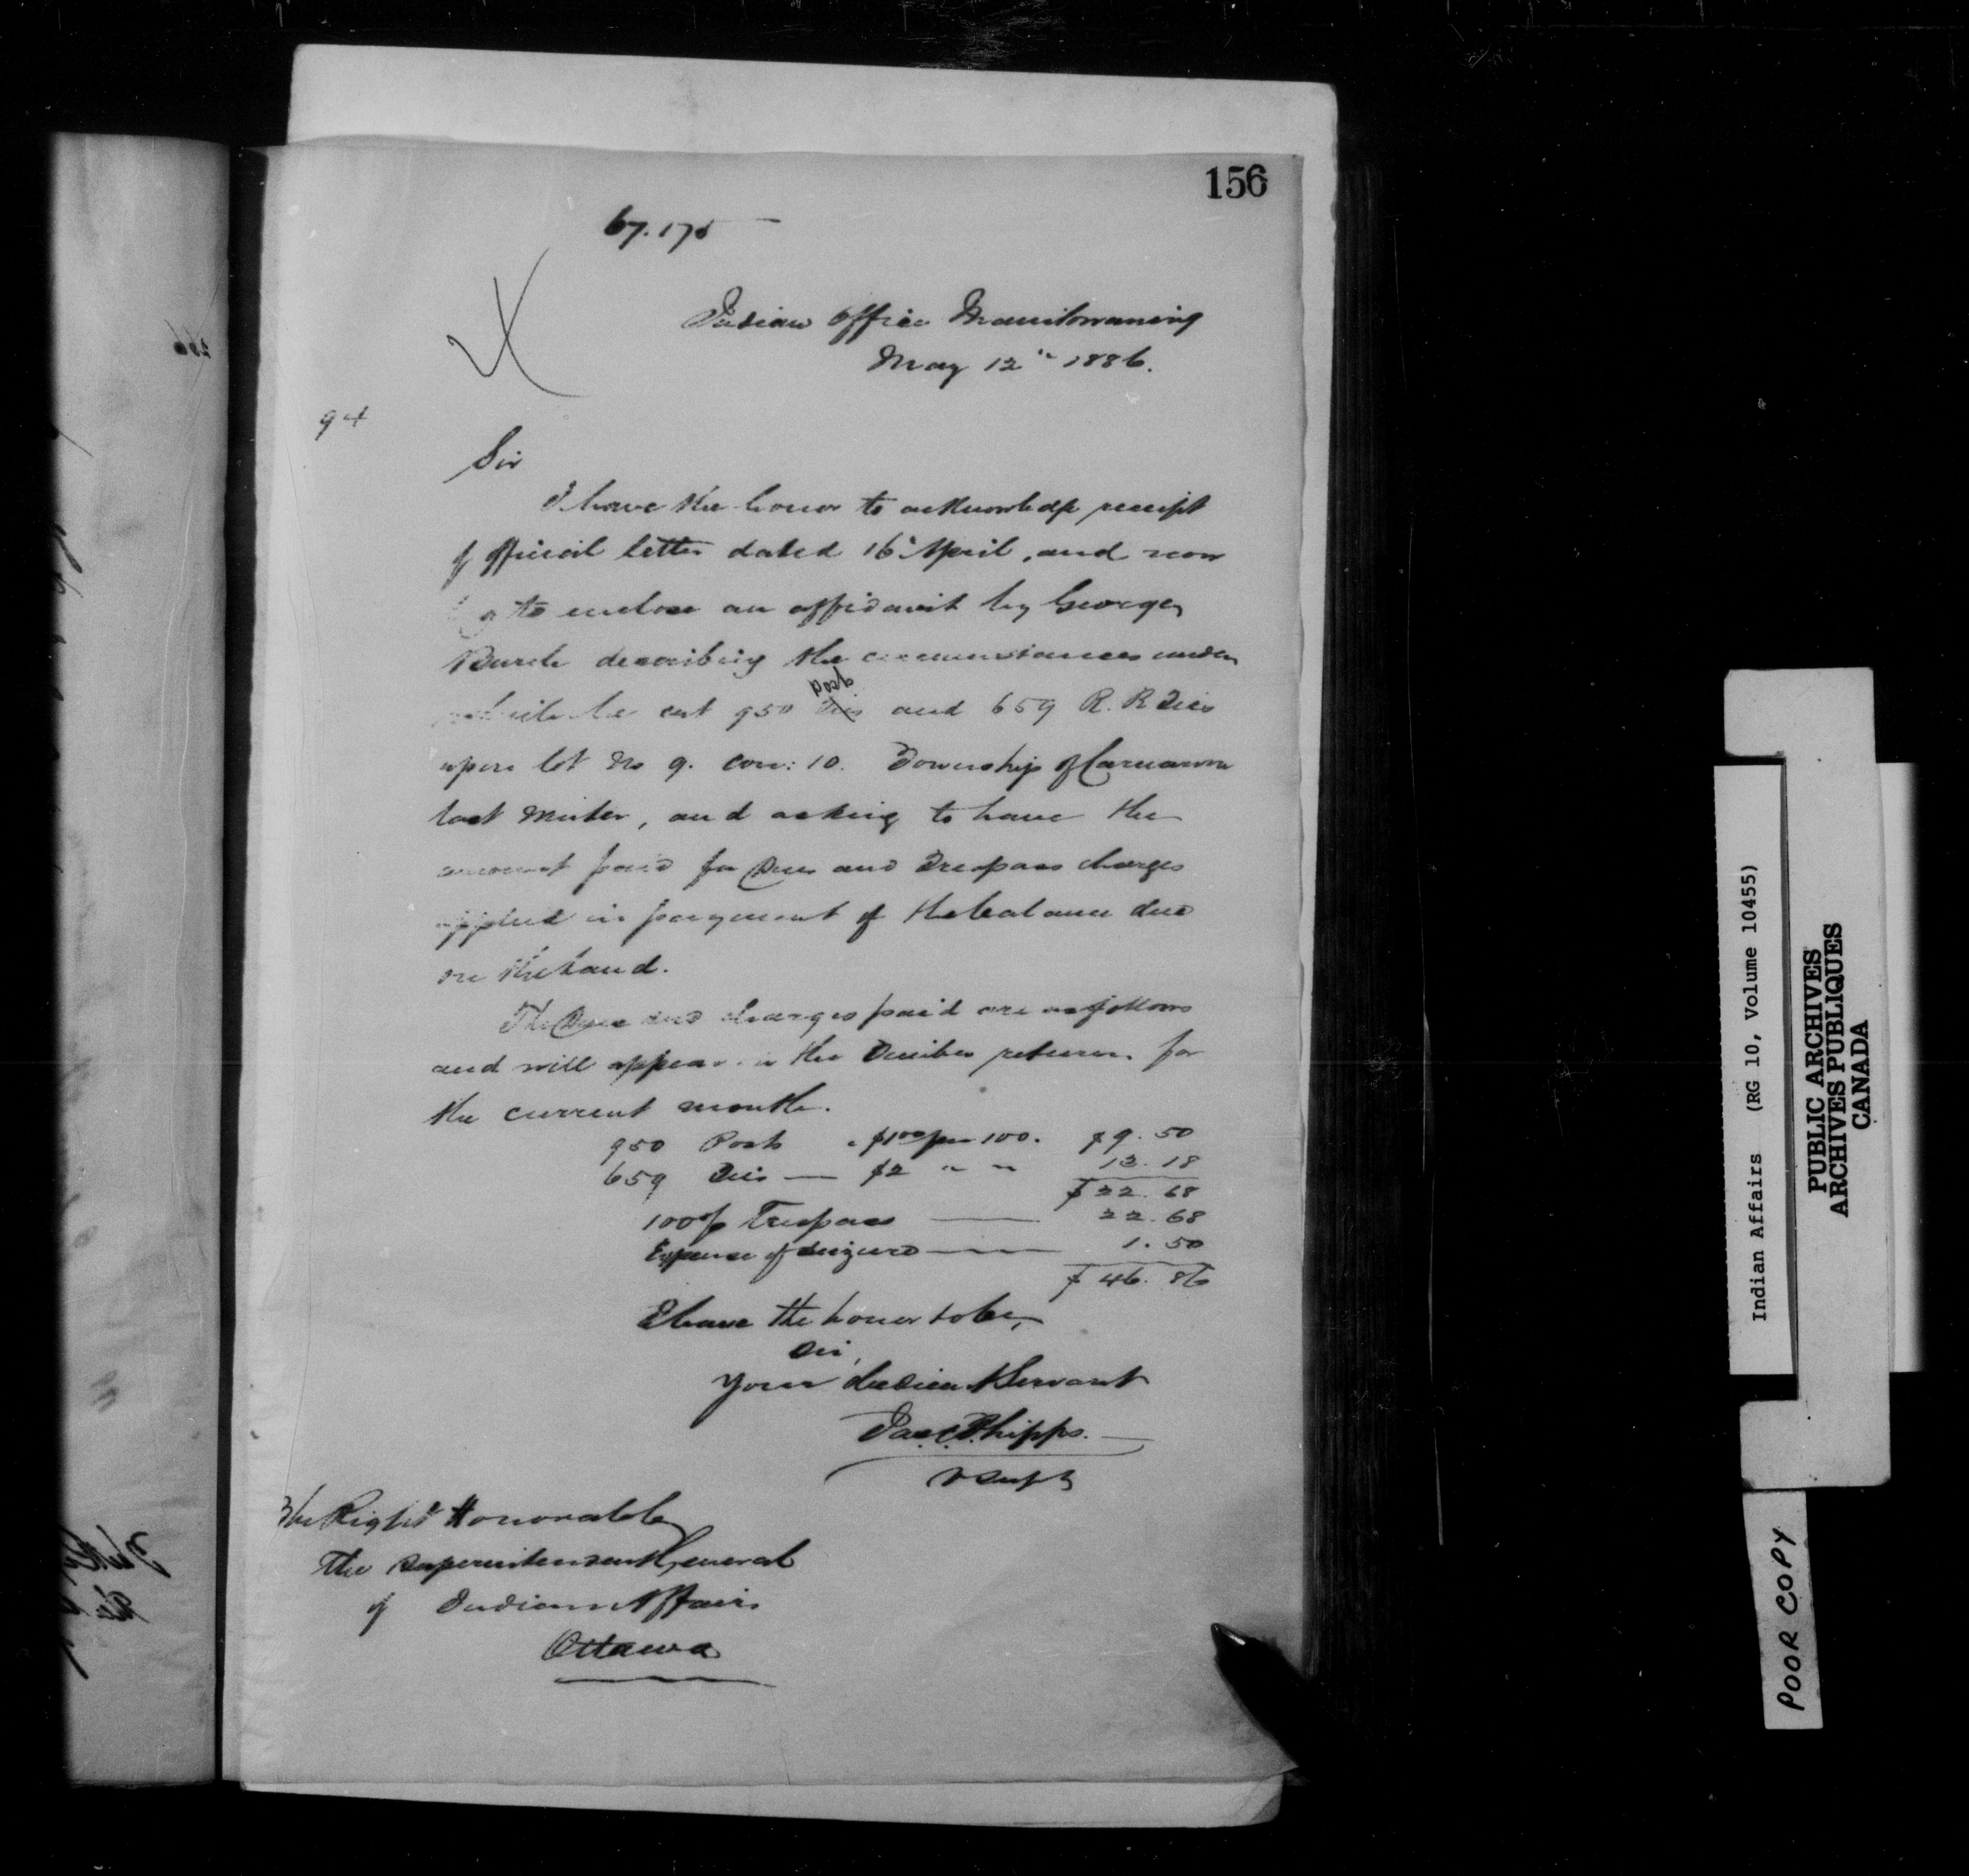 156
67.175
Indian Office Manitowaning
May 12th 1886.
94
Sir
I have the honor to acknowledge receipt
of official letter dated 16th April, and now
to enclose an affidavit by George
Burch describing the circumstances under
which he cut 950 posts and 659 R. R Ties
upon lot No 9. con: 10. Township of Carnarvon
last Winter, and asking to have the
amount paid for Dues and Trespass charges
applied in payment of the balance due
on the Land.
The Dues and charges paid are as follows
and will appear in the Timber return for
the current month.
950 Posts $1.00 per 100. $9.50
659 Ties — $2 " " 13.18
$22.68
100% Trespass — 22.68
Expense of seizure — 1.50
$46.86
I have the honor to be,
Sir,
Your Obedient Servant
Jas. C. Phipps.
V Supt
The Right Honorable
The Superintendent General
of Indian Affairs
Ottawa
Indian Affairs (RG 10, Volume 10455)
PUBLIC ARCHIVES
ARCHIVES PUBLIQUES
CANADA
POOR COPY